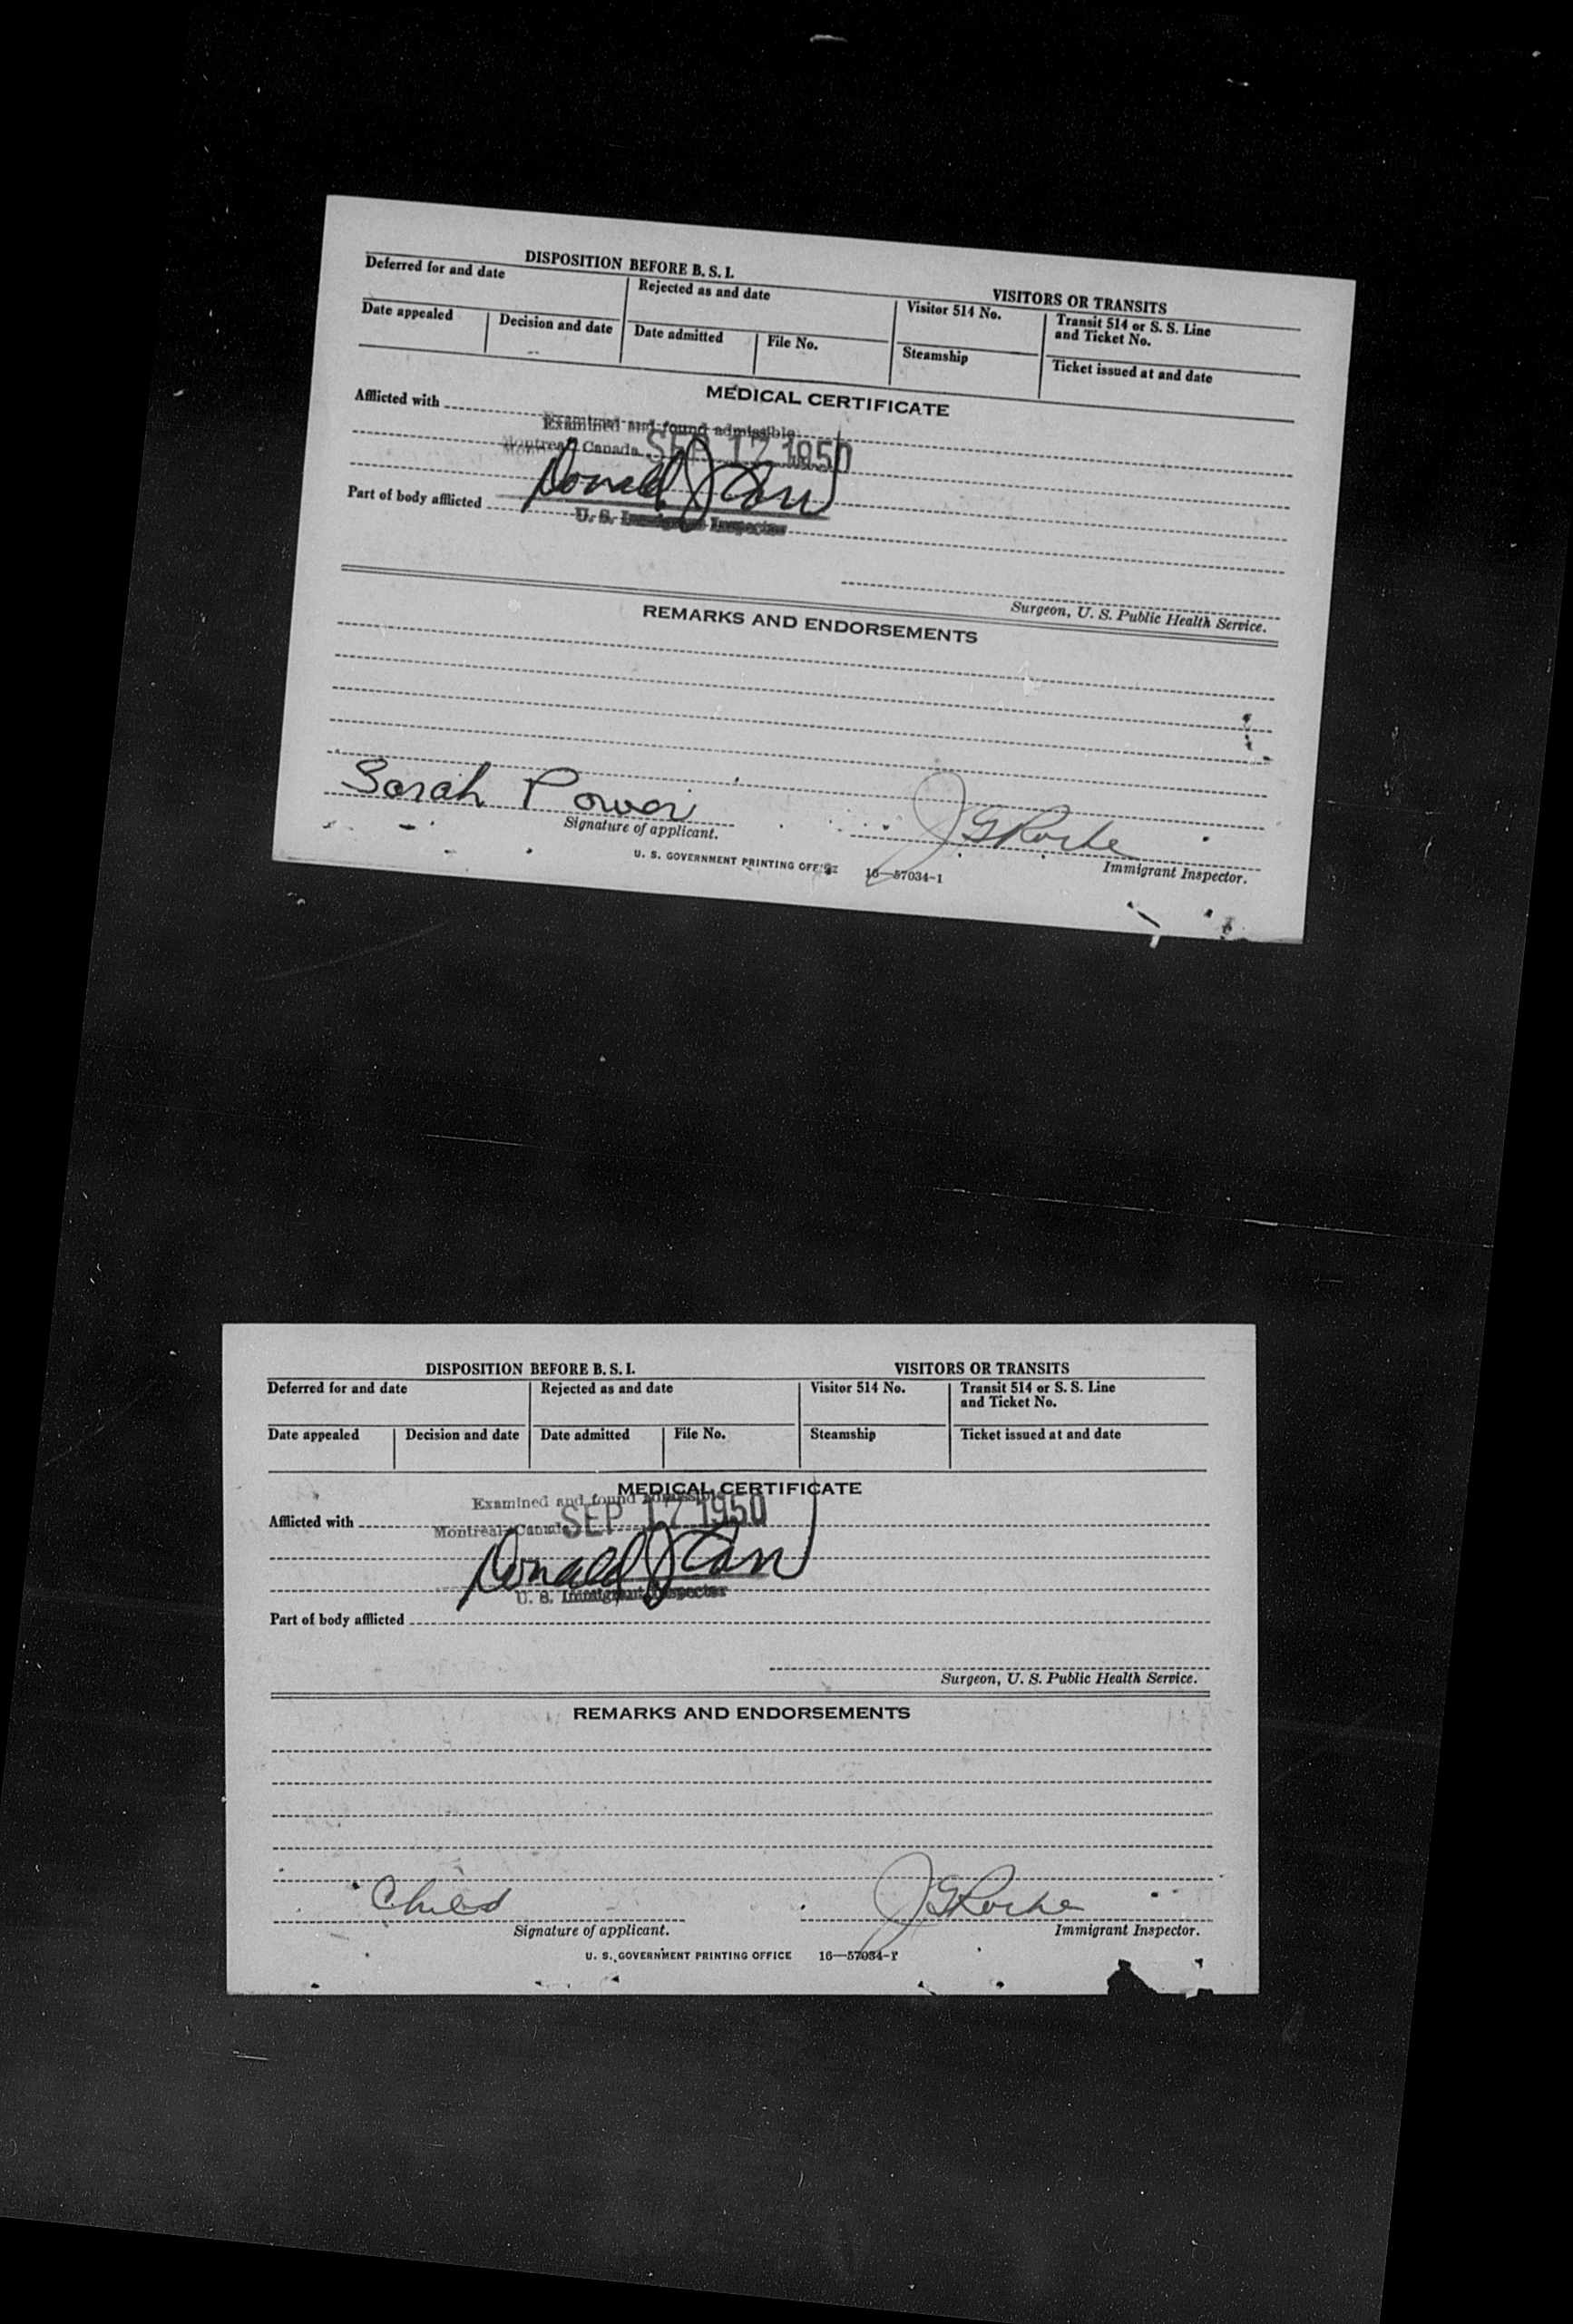 DISPOSITION BEFORE B. S. I.
VISITORS OR TRANSITS
Deferred for and date
Rejected as and date
Visitor 514 No.
Transit 514 or S. S. Line
and Ticket No.
Date appealed
Decision and date
Date admitted
File No.
Steamship
Ticket issued at and date
MEDICAL CERTIFICATE
Afflicted with
Examined and found admissible
Montreal, Canada SEP 17 1950
Donald J
Part of body afflicted
U. S. Immigrant Inspector
Surgeon, U. S. Public Health Service.
REMARKS AND ENDORSEMENTS
Sarah Power
J G Roche
Signature of applicant.
Immigrant Inspector.
U. S. GOVERNMENT PRINTING OFFICE 16—57034-1
DISPOSITION BEFORE B. S. I.
VISITORS OR TRANSITS
Deferred for and date
Rejected as and date
Visitor 514 No.
Transit 514 or S. S. Line
and Ticket No.
Date appealed
Decision and date
Date admitted
File No.
Steamship
Ticket issued at and date
MEDICAL CERTIFICATE
Examined and found admissible
Afflicted with
Montreal, Canada SEP 17 1950
Donald J
U. S. Immigrant Inspector
Part of body afflicted
Surgeon, U. S. Public Health Service.
REMARKS AND ENDORSEMENTS
Child
J G Roche
Signature of applicant.
Immigrant Inspector.
U. S. GOVERNMENT PRINTING OFFICE 16—57034-1